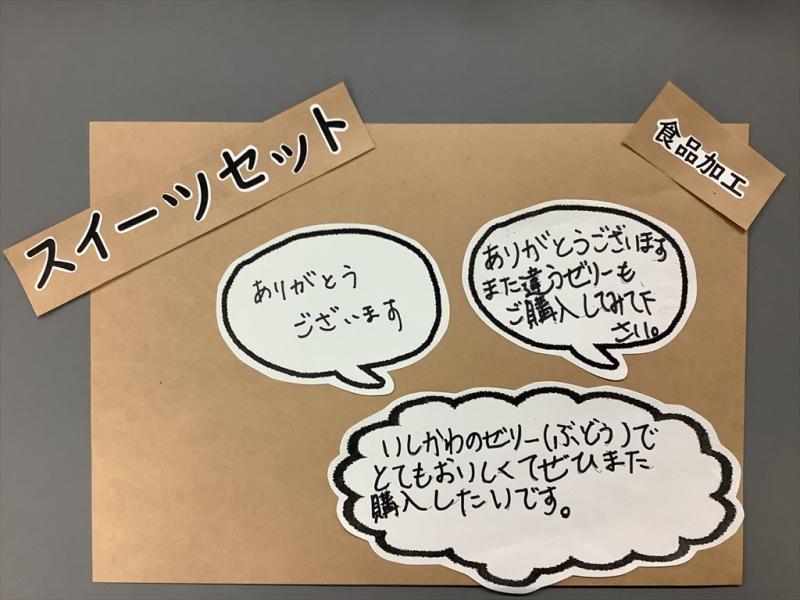 スイーツセット
食品加工
ありがとう
ございます
ありがとうございます
また違うゼリーも
ご購入してみて下
さい。
いしかわのゼリー(ぶどう)で
とてもおいしくてぜひまた
購入したいです。